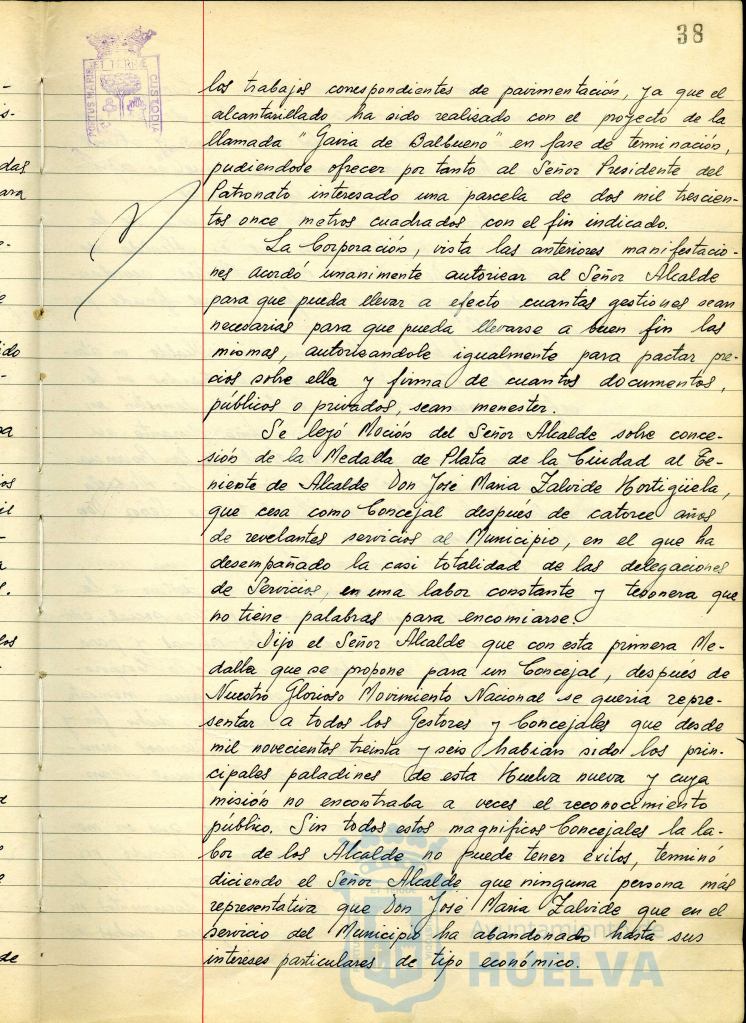 38
PORTUS MARIS ET TERRAE CUSTODIA
los trabajos correspondientes de pavimentación, ya que el
alcantarillado ha sido realisado con el proyecto de la
llamada "Gavia de Balbueno" en fase de terminación,
pudiendose ofrecer por tanto al Señor Presidente del
Patronato interesado una parcela de dos mil trescien-
tos once metros cuadrados con el fin indicado.
La Corporación, vista las anteriores manifestacio-
nes acordó unanimente autorizar al Señor Alcalde
para que pueda llevar a efecto cuantas gestiones sean
necesarias para que pueda llevarse a buen fin las
mismas, autorisandole igualmente para pactar pre-
cios sobre ella y firma de cuantos documentos,
públicos o privados, sean menester.
Se lejó Moción del Señor Alcalde sobre conce-
sión de la Medalla de Plata de la Ciudad al Te-
niente de Alcalde Don José Maria Zalvide Hortigüela,
que cesa como Concejal después de catorce años
de revelantes servicios al Municipio, en el que ha
desempañado la casi totalidad de las delegaciones
de Servicios, en una labor constante y tesonera que
no tiene palabras para encomiarse.
Dijo el Señor Alcalde que con esta primera Me-
dalla que se propone para un Concejal, después de
Nuestro Glorioso Movimiento Nacional se queria repre-
sentar a todos los Gestores y Concejales que desde
mil novecientos treinta y seis habian sido los prin-
cipales paladines de esta Huelva nueva y cuya
misión no encontraba a veces el reconocimiento
público. Sin todos estos magnificos Concejales la la-
bor de los Alcalde no puede tener éxitos, terminó
diciendo el Señor Alcalde que ninguna persona más
representativa que Don José Maria Zalvide que en el
servicio del Municipio ha abandonado hasta sus
intereses particulares de tipo económico.
Ayuntamiento de
HUELVA